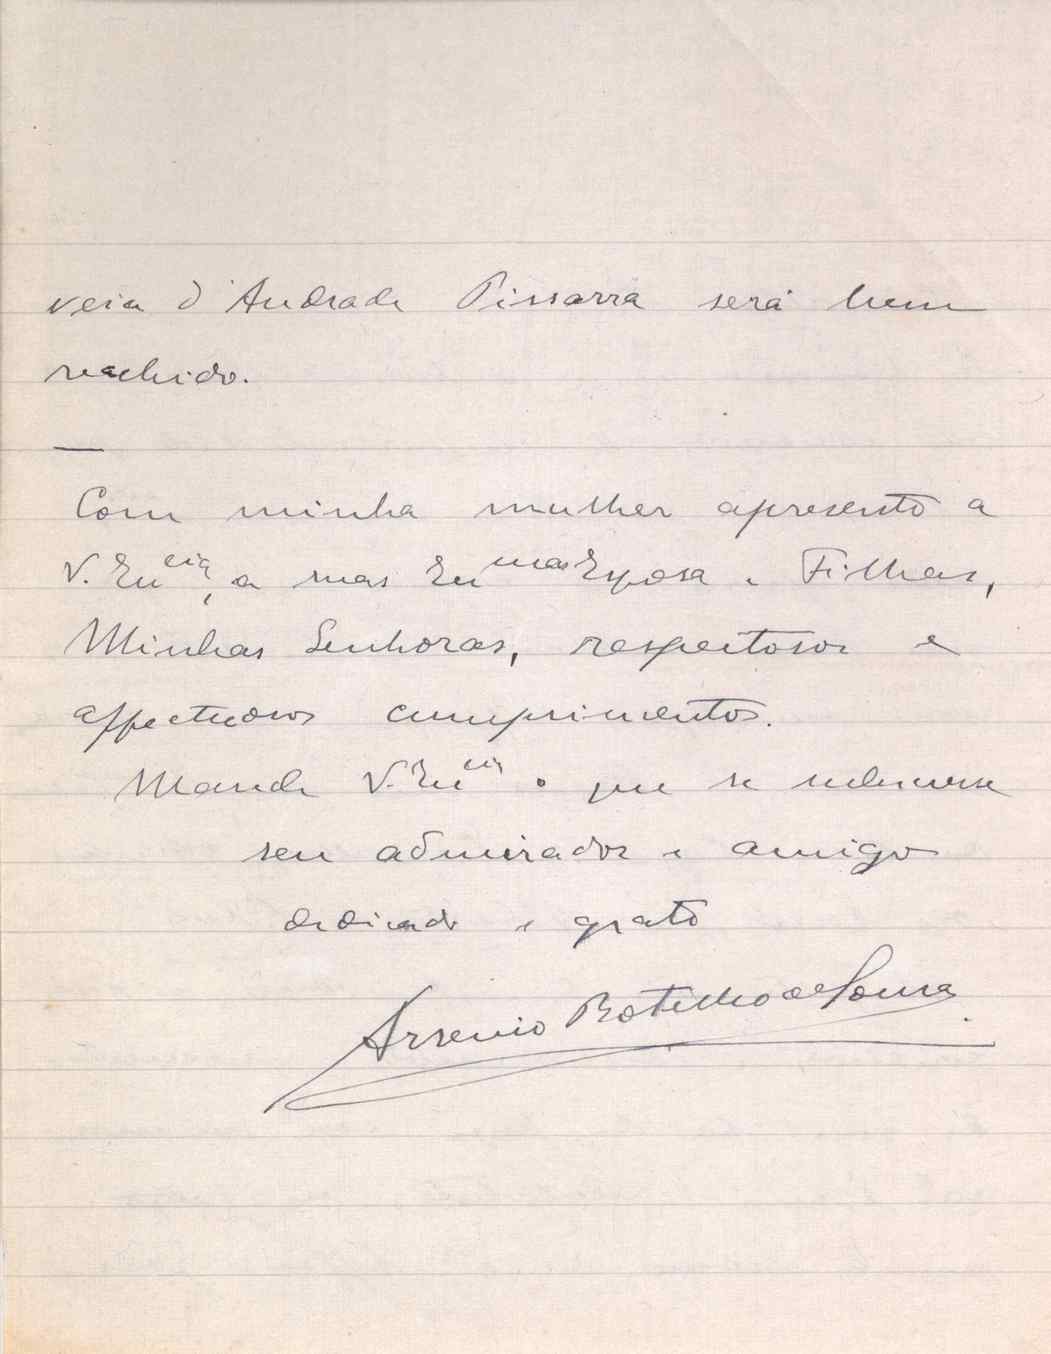 veia d'Andrade Pissarra será bem
recebido.
—
Com minha mulher apresento a
V. Ex.cia, a suas Ex.mas Esposa e Filhas,
Minhas Senhoras, respeitosos e
affectuosos cumprimentos.
Mande V. Ex.cia o que se subscreve
seu admirador e amigo
dedicado e grato
Arsenio Botelho de Sousa